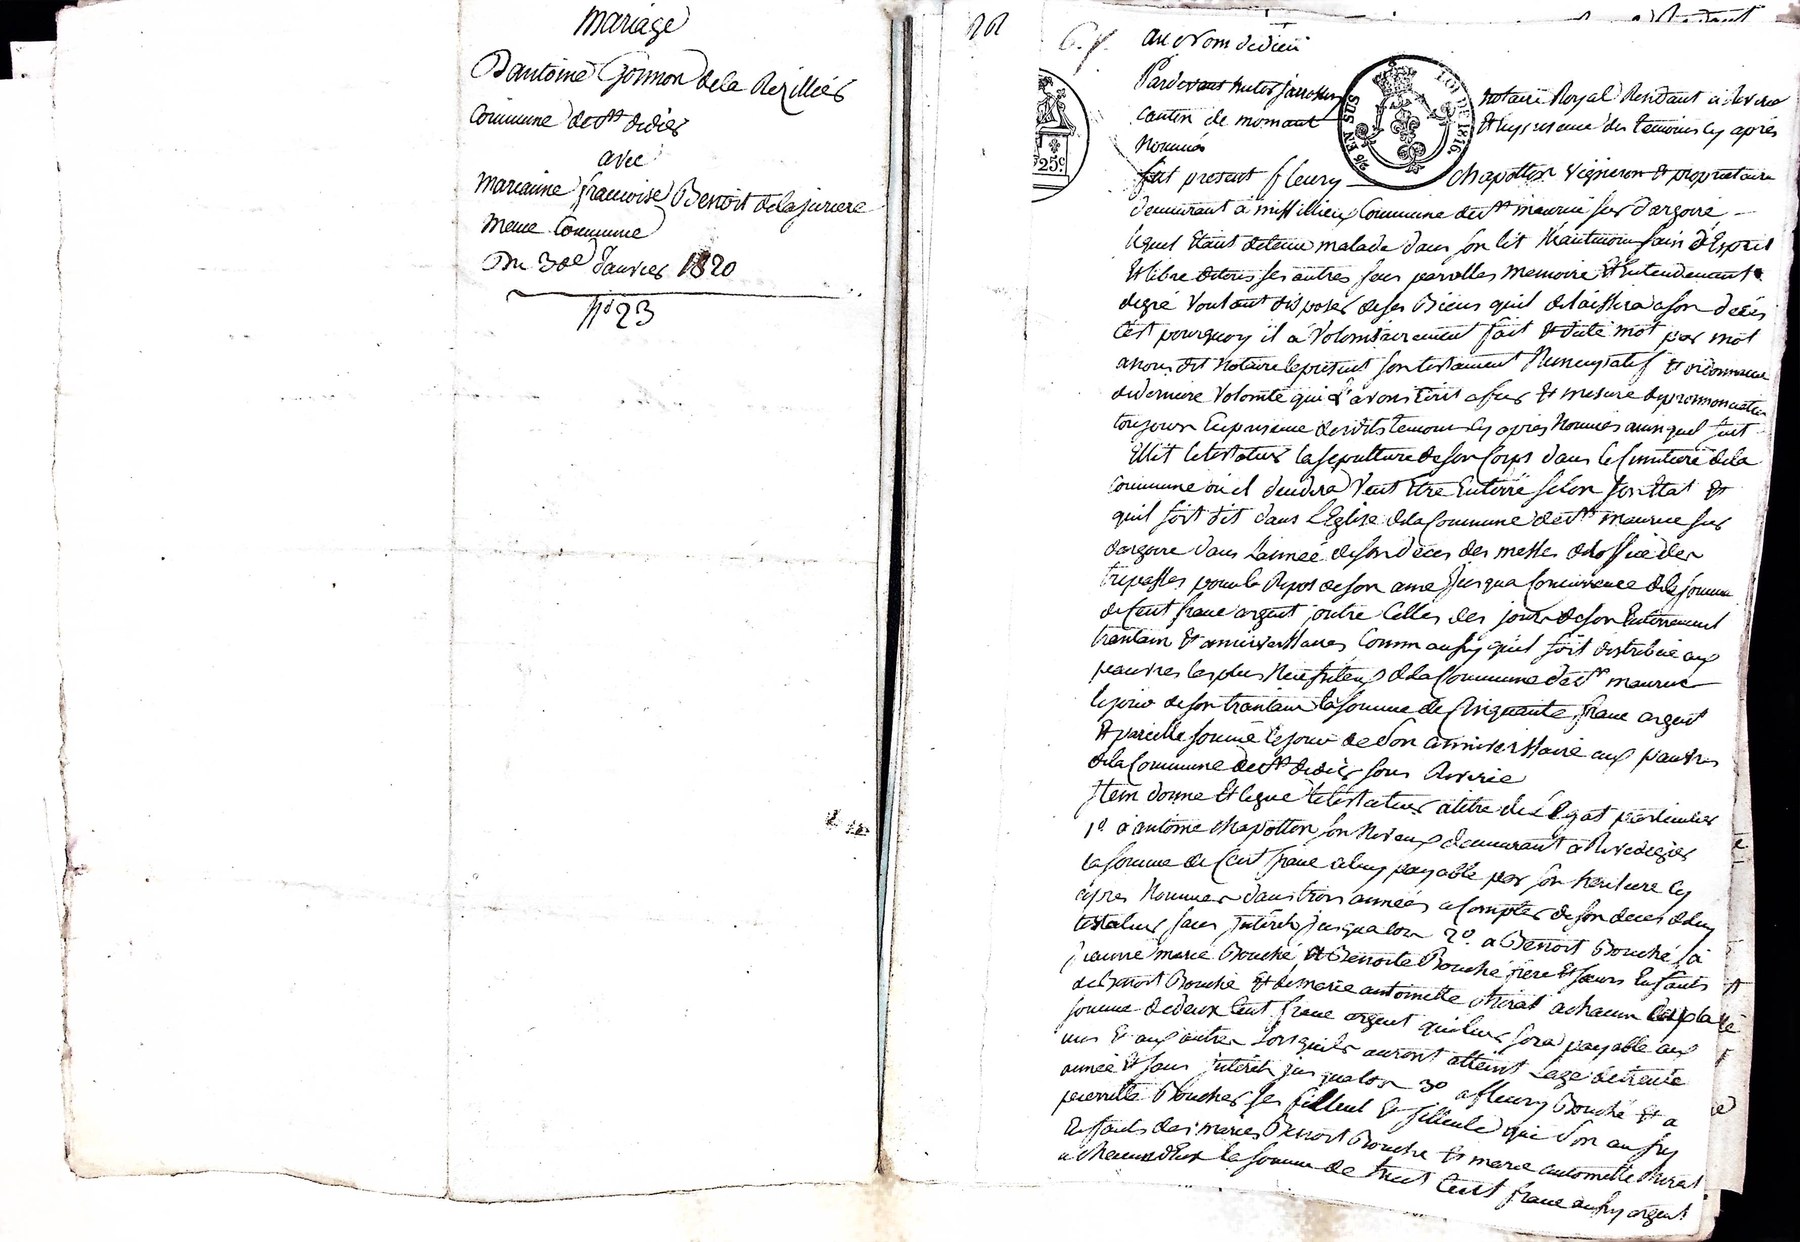 Mariage
D'antoine Goinon de la Rezilliés
Commune de st didier
avec
Marianne francoise Benoit de la juriere
meme Commune
Du 30e Janvier 1820
No 23
22
au Nom de dieu
Pardevant notaire Royal Residant à Riverie
canton de mornant Et en presence des temoins cy après
Nommés
fut present fleury chapotton vigneron et proprietaire
demeurant à missillieu Commune de st maurice sur dargoire
lequel Etant detenu malade dans son lit Neantmoins sain d'Esprit
Et libre de tous ses autres sens parolles memoire Et Entendement
de gre voulant disposer de ses Biens quil delaissera a son decés
C'est pourquoy il a volontairement fait et dicté mot par mot
a nous dit Notaire le present son testament Nuncupatif et ordonnance
de derniere volonté que l'avons Ecrit a fur et mesure de prononciation
toujours En presence desdits temoins cy après Nommés
Ellit le testateur la sepulture de son Corps dans le Cimitiere de la
commune où il decedera veut Etre Enterré selon son Etat et
quil soit dit dans l'Eglise de la Commune de st maurice sur
dargoire dans l'année de son décès des messes de l'office des
trepassés pour le Repos de son ame jusqua concurrence de la somme
de Cent franc argent outre Celles des jours de son Enterrement
trantain Et anniverssaires Comm aussy quil soit distribué aux
pauvres les plus Necessiteux de la Commune de st maurice
le jour de son trantain la somme de Cinquante franc argent
Et pareille somme le jour de son anniverssaire aux pauvres
de la Commune de st didier sous Riverie
Item donne Et legue le testateur a titre de Legat particulier
1o à antoine chapotton son Neveu demeurant à Rivedegier
la somme de Cent franc a luy payable par son heritiere cy
après Nommée dans trois années a Compter de son deces dudit
testateur sans Interets jusqua lors 2o a Benoit Bouché, à
jeanne marie Bouché Et Benoite Bouché frere Et sœurs Enfants
de Benoit Bouché Et de marie antoinette Murat a chacun la
somme de deux Cent franc argent qui leur sera payable aux
uns Et aux autres lors quils auront atteint l'age de trente
année Et sans Interets jus qualors 3o a fleury Bouché Et a
pierrette Boucher ses filleul Et filleule qui son aussy
Enfants des maries Benoit Bouche Et marie antoinette Murat
a chacun d'Eux la somme de huit Cent franc aussy argent
LOI DE 1816.
EN SUS
25c